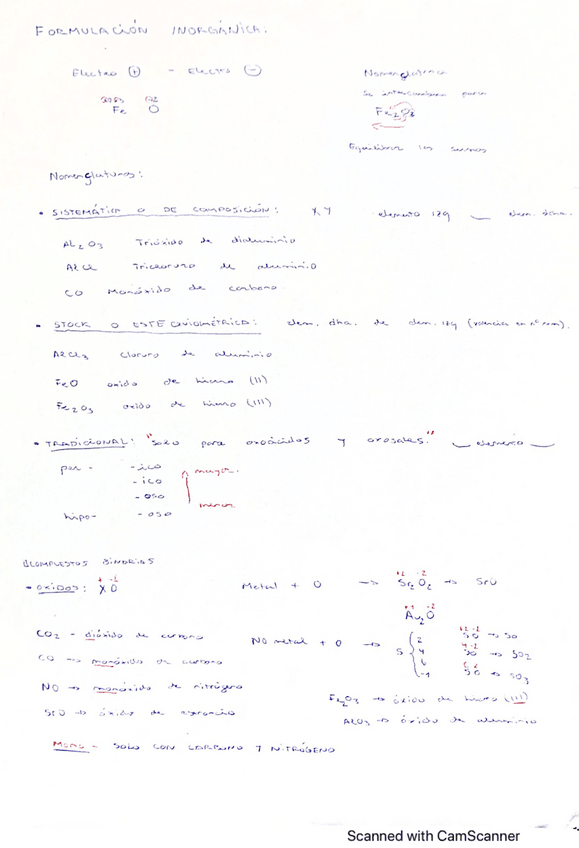 FORMULACIÓN INORGÁNICA:
Electro (+) - Electro (-)
Fe O
Nomenglatura
Se intercambian para
Fe2O3
Equilibrar las
Nomenglaturas:
• SISTEMÁTICA O DE COMPOSICIÓN: XY elemento izq elem. dcha.
Al2O3 Trióxido de dialuminio
AlCl Tricloruro de aluminio
CO Monóxido de carbono
• STOCK O ESTEQUIOMÉTRICA: elem. dha. de elem. izq (valencia en nº rom).
AlCl3 cloruro de aluminio
FeO oxido de hierro (II)
Fe2O3 oxido de hierro (III)
• TRADICIONAL: "solo para oxoácidos y oxosales." elemento
per - -ico mayor.
-ico
-oso
hipo- -oso menor
COMPUESTOS BINARIOS
• OXIDOS: XO Metal + O → Sr2O2 → SrO
+1 -2
Au2O
CO2 - dióxido de carbono
NO metal + O → S { 2 SO → SO
4 SO → SO2
6 SO → SO3
-2
CO → monóxido de carbono
NO → monóxido de nitrógeno
Fe2O3 → óxido de hierro (III)
SrO → óxido de estroncio
AlO3 → óxido de aluminio
MONO - SOLO CON CARBONO Y NITRÓGENO
Scanned with CamScanner